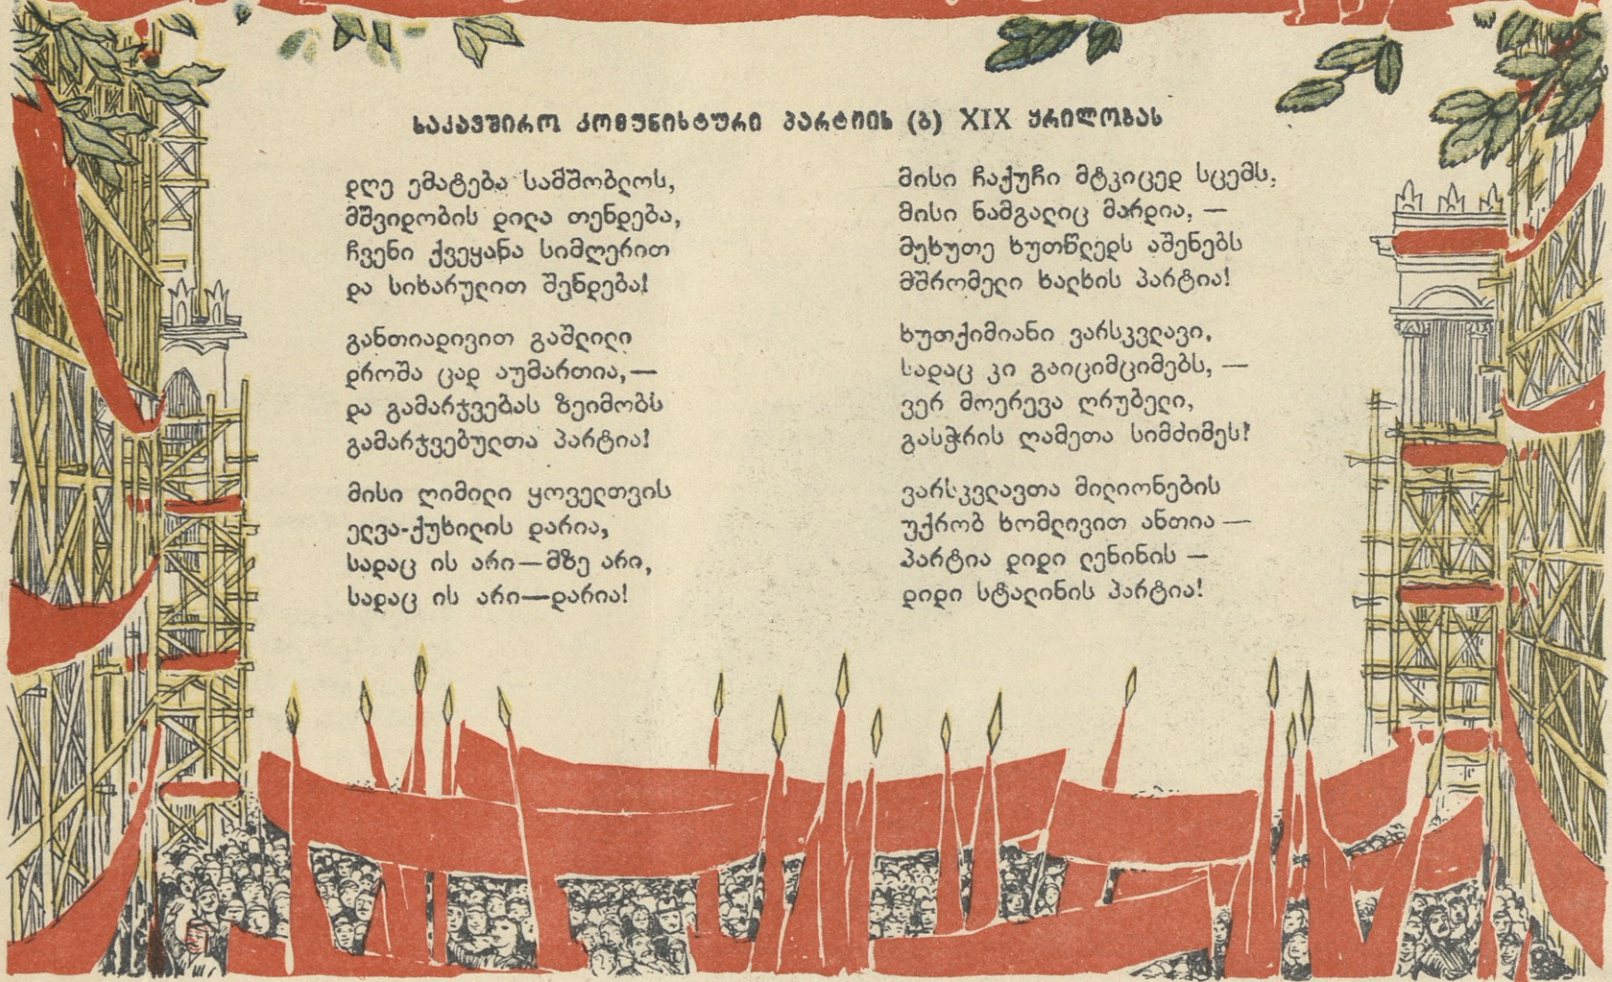 საკავშირო კომუნისტური პარტიის (ბ) XIX ყრილობას
დღე ემატება სამშობლოს,
მშვიდობის დილა თენდება,
ჩვენი ქვეყანა სიმღერით
და სიხარულით შენდება!
განთიადივით გაშლილი
დროშა ცად აუმართია,—
და გამარჯვებას ზეიმობს
გამარჯვებულთა პარტია!
მისი ღიმილი ყოველთვის
ელვა-ქუხილის დარია,
სადაც ის არი—მზე არი,
სადაც ის არი—დარია!
მისი ჩაქუჩი მტკიცედ სცემს,
მისი ნამგალიც მარდია, —
მეხუთე ხუთწლედს აშენებს
მშრომელი ხალხის პარტია!
ხუთქიმიანი ვარსკვლავი,
სადაც კი გაიციმციმებს, —
ვერ მოერევა ღრუბელი,
გასჭრის ღამეთა სიმძიმეს!
ვარსკვლავთა მილიონების
უქრობ ხომლივით ანთია —
პარტია დიდი ლენინის —
დიდი სტალინის პარტია!